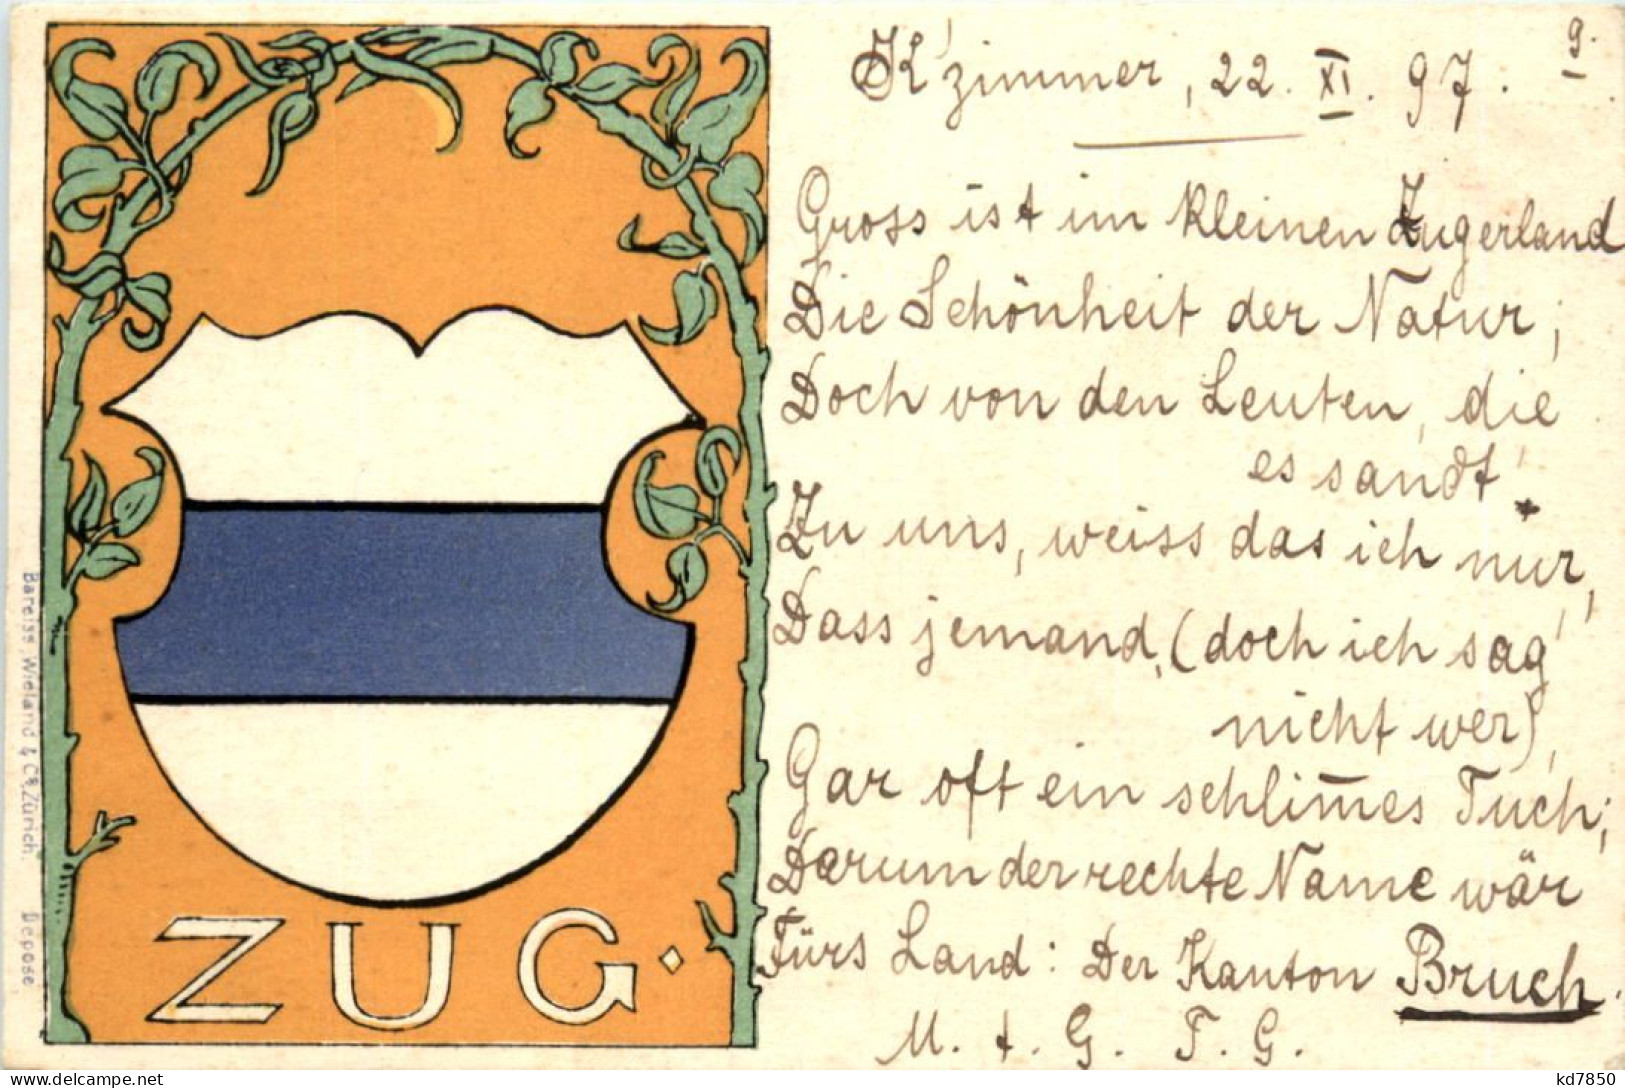 K'zimmer, 22. XI. 97.
9.
Gross ist im kleinen Zugerland
Die Schönheit der Natur;
Doch von den Leuten, die
es sandt'
Zu uns, weiss das ich nur,
Dass jemand, (doch ich sag'
nicht wer),
Gar oft ein schlim̅es Tuch;
Darum der rechte Name wär
Fürs Land: Der Kanton Bruch.
M. + G. F. G.
ZUG.
Bareiss, Wieland & Co. Zürich. Déposé
kd7850